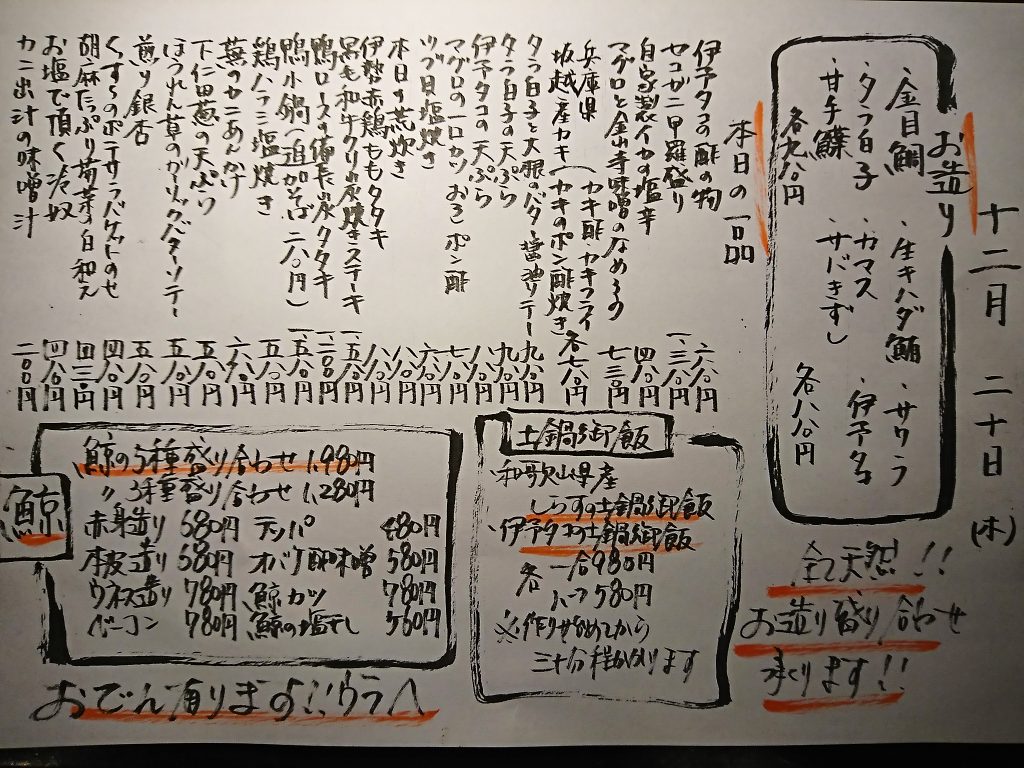 十二月 二十日 (木)
お造り
・金目鯛 ・生キハダ鮪 ・サワラ
・タラ白子 ・カマス ・伊予タコ
・甘手鰈 サバきずし
各九八〇円 各八八〇円
全て天然!!
お造り盛り合わせ
承ります!!
本日の一品
伊予タコの酢の物 六八〇円
セコガニ甲羅盛り 一、三八〇円
自家製イカの塩辛 四八〇円
マグロと金山寺味噌のなめろう 七三〇円
兵庫県
坂越産カキ(カキ酢 カキフライ カキのポン酢焼き 各七八〇円
タラ白子と大根のバター醤油ソテー 九八〇円
タラ白子の天ぷら 九八〇円
伊予タコの天ぷら 八八〇円
マグロの一口カツ おろしポン酢 七八〇円
ツブ貝塩焼き 六八〇円
本日の荒炊き 八八〇円
伊勢赤鶏ももタタキ 八八〇円
黒毛和牛クリ 炭焼きステーキ 一、五八〇円
鴨ロースの備長炭タタキ 一、二〇〇円
鴨小鍋(追加そば 二八〇円) 一、五八〇円
鶏ハラミ塩焼き 五八〇円
蕪のカニあんかけ 六八〇円
下仁田葱の天ぷら 五八〇円
ほうれん草のガーリックバターソテー 五八〇円
煎り銀杏 五八〇円
くんすらのポテサラバゲットのせ 四八〇円
胡麻たっぷり菊芽の白和え 四三〇円
お塩で頂く冷奴 四八〇円
カニ出汁の味噌汁 二〇〇円
土鍋御飯
、和歌山県産
しらすの土鍋御飯
、伊予タコの土鍋御飯
各 一合980円
ハーフ580円
※作り始めてから
三十分程かかります
鯨
鯨の5種盛り合わせ 1,980円
〃3種盛り合わせ 1,280円
赤身造り 680円 テッパ 680円
本皮造り 580円 オバケ酢味噌 580円
ウネス造り 780円 鯨カツ 780円
ベーコン 780円 鯨の塩干し 560円
おでん有ります!!ウラへ